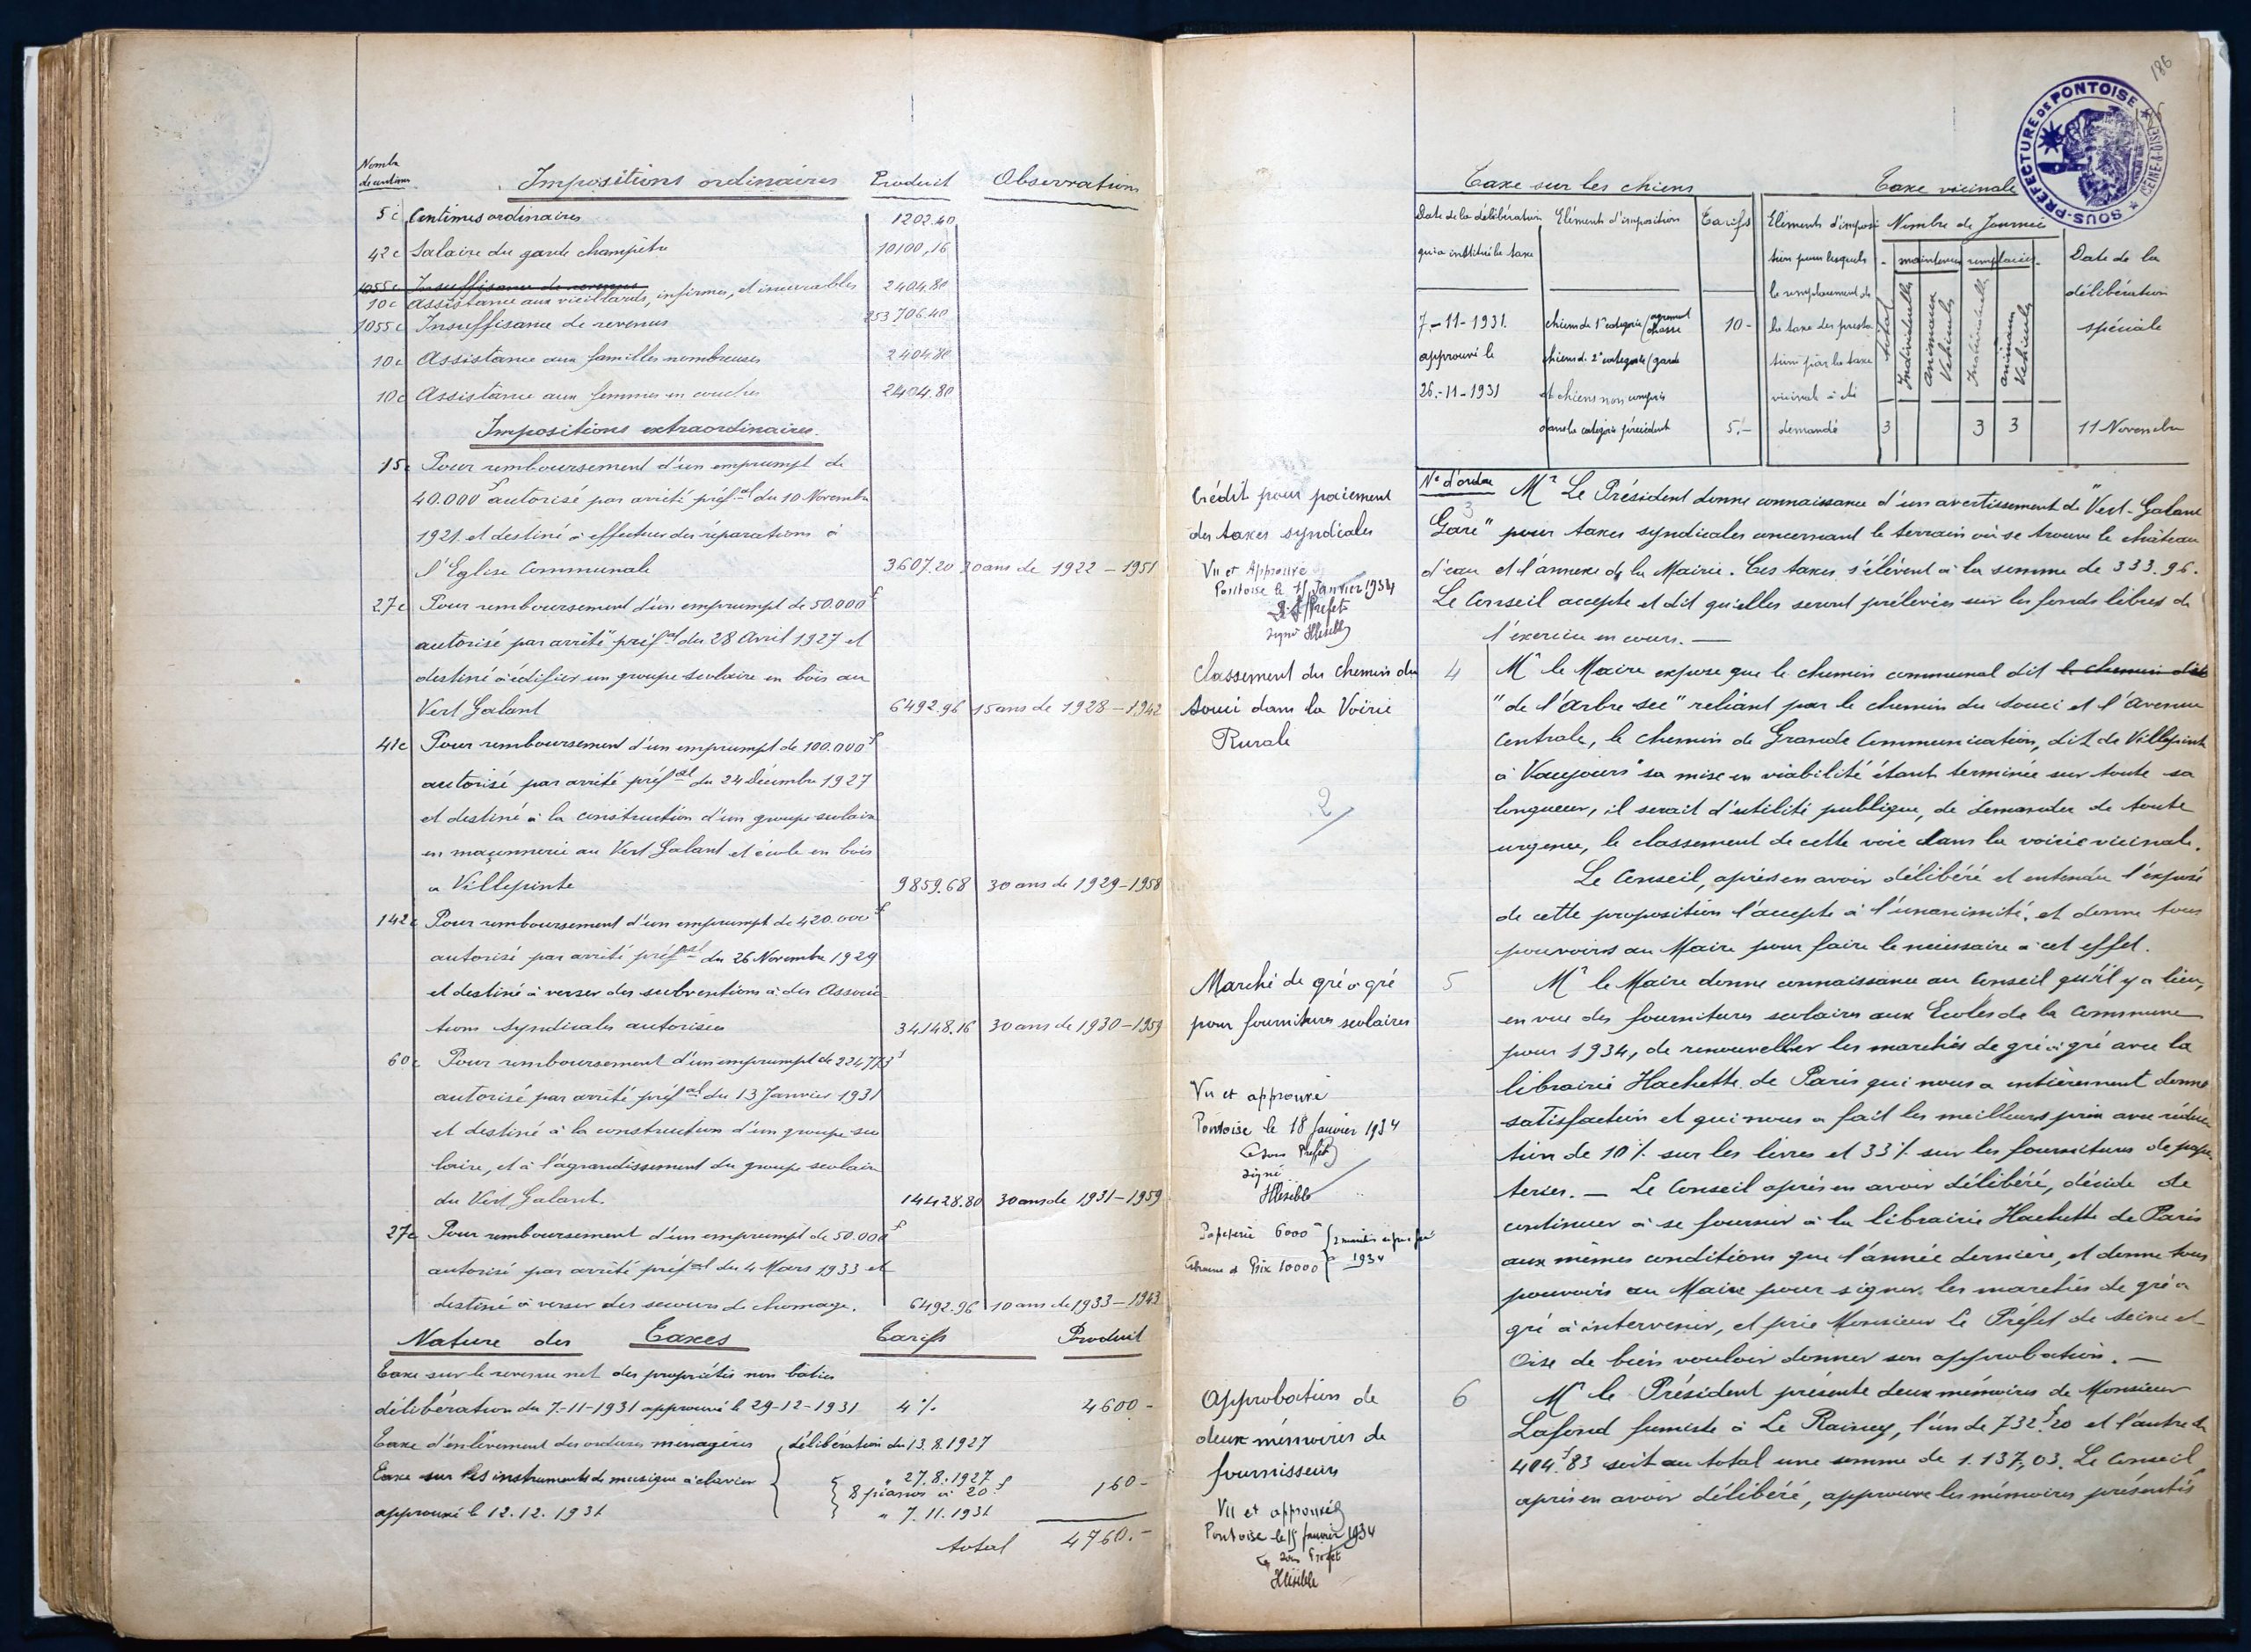 Nombre
de centimes
Impositions ordinaires Produit Observations
5 c Centimes ordinaires 1202.40
42 c Salaire du garde champêtre 10100,16
1055 c Insuffisance de revenus
10 c Assistance aux vieillards, infirmes, et incurables 2404.80
1055 c Insuffisance de revenus 253706.40
10 c Assistance aux familles nombreuses 2404.80
10 c Assistance aux femmes en couches 2404.80
Impositions extraordinaires.
15 c Pour remboursement d'un emprumpt de
40.000 f autorisé par arrêté préf.al du 10 Novembre
1921. et destiné à effectuer des réparations à
l'Eglise Communale 3607.20 30 ans de 1922 - 1951
27 c Pour remboursement d'un emprumpt de 50.000 f
autorisé par arrêté préf al du 28 Avril 1927 et
destiné à édifier un groupe scolaire en bois au
Vert Galant 6492.96 15 ans de 1928 - 1942
41 c Pour remboursement d'un emprumpt de 100.000 f
autorisé par arrêté préf al du 24 Décembre 1927
et destiné à la construction d'un groupe scolaire
en maçonnerie au Vert Galant et école en bois
à Villepinte 9859.68 30 ans de 1929 - 1958
142 c Pour remboursement d'un emprumpt de 420.000 f
autorisé par arrêté préf al du 26 Novembre 1929
et destiné à verser des subventions à des Associa-
tions syndicales autorisées 34148.16 30 ans de 1930 - 1959
60 c Pour remboursement d'un emprumpt de 224773 f
autorisé par arrêté préf al du 13 Janvier 1931
et destiné à la construction d'un groupe sco
laire, et à l'agrandissement du groupe scolaire
du Vert Galant. 14428.80 30 ans de 1931 - 1959
27 c Pour remboursement d'un emprumpt de 50.000 f
autorisé par arrêté préf al du 4 Mars 1933 et
destiné à verser des secours de chomage. 6492.96 10 ans de 1933 - 1943
Nature des Taxes Tarifs Produit
Taxe sur le revenu net des propriétés non bâties
délibération du 7-11-1931 approuvé le 29-12-1931 4 % 4600 -
Taxe d'enlèvement des ordures ménagères délibération du 13.8.1927
Taxe sur les instruments de musique à clavier " 27.8.1927
8 pianos à 20 f 160 -
approuvé le 12.12.1931 " 7.11.1931
total 4760.-
186
SOUS-PRÉFECTURE DE PONTOISE
SEINE-&-OISE
Taxe sur les chiens Taxe vicinale
Date de la délibération Eléments d'imposition Tarifs
qui a institué la taxe
7-11-1931. chiens de 1re catégorie (agrément chasse 10 -
approuvé le chiens de 2e catégorie (garde
26-11-1931 et chiens non compris
dans la catégorie précédente 5.-
Eléments d'imposi Nombre de Journées
tion pour lesquels maintenues remplacées Date de la
le remplacement de délibération
la taxe des presta spéciale
tion par la taxe
vicinale a été
demandé
total Individuelle animaux Véhicules Individuelle animaux Véhicules
3 3 3 11 Novembre
Crédit pour paiement
des taxes syndicales
Vu et Approuvé
Pontoise le 15 Janvier 1934
Le S/Prefet
signé Illisible
N° d'ordre
3
Mr Le Président donne connaissance d'un avertissement de "Vert-Galant
Gare" pour taxes syndicales concernant le terrain où se trouve le château
d'eau et l'annexe de la Mairie. Ces taxes s'élèvent à la somme de 333.96.
Le Conseil accepte et dit qu'elles seront prélevées sur les fonds libres de
l'exercice en cours. —
Classement du chemin du
Souci dans la Voirie
Rurale
2
4 Mr le Maire expose que le chemin communal dit le chemin dit
"de l'Arbre sec" reliant par le chemin du souci et l'Avenue
Centrale, le chemin de Grande Communication, dit de Villepinte
à Vaujours" sa mise en viabilité étant terminée sur toute sa
longueur, il serait d'utilité publique, de demander de toute
urgence, le classement de cette voie dans la voirie vicinale.
Le Conseil, après en avoir délibéré et entendu l'exposé
de cette proposition l'accepte à l'unanimité, et donne tous
pouvoirs au Maire pour faire le nécessaire à cet effet.
Marché de gré à gré
pour fournitures scolaires
Vu et approuvé
Pontoise le 18 Janvier 1934
Le Sous Préfet
signé
Illisible
Papeterie 6000
Librairie et Prix 10000
1934
5 Mr le Maire donne connaissance au Conseil qu'il y a lieu,
en vue des fournitures scolaires aux Ecoles de la Commune
pour 1934, de renouveller les marchés de gré à gré avec la
librairie Hachette de Paris qui nous a entièrement donné
satisfaction et qui nous a fait les meilleurs prix avec réduc
tion de 10 % sur les livres et 33 % sur les fournitures de pape
teries. — Le Conseil après en avoir délibéré, décide de
continuer à se fournir à la librairie Hachette de Paris
aux mêmes conditions que l'année dernière, et donne tous
pouvoirs au Maire pour signer les marchés de gré à
gré à intervenir, et prie Monsieur le Préfet de Seine et
Oise de bien vouloir donner son approbation. —
Approbation de
deux mémoires de
fournisseurs
Vu et approuvé
Pontoise le 15 Janvier 1934
Le Sous Préfet
Illisible
6 Mr le Président présente deux mémoires de Monsieur
Lafond fumiste à Le Raincy, l'un de 732 f 20 et l'autre de
404 f 83 soit au total une somme de 1.137,03. Le Conseil
après en avoir délibéré, approuve les mémoires présentés